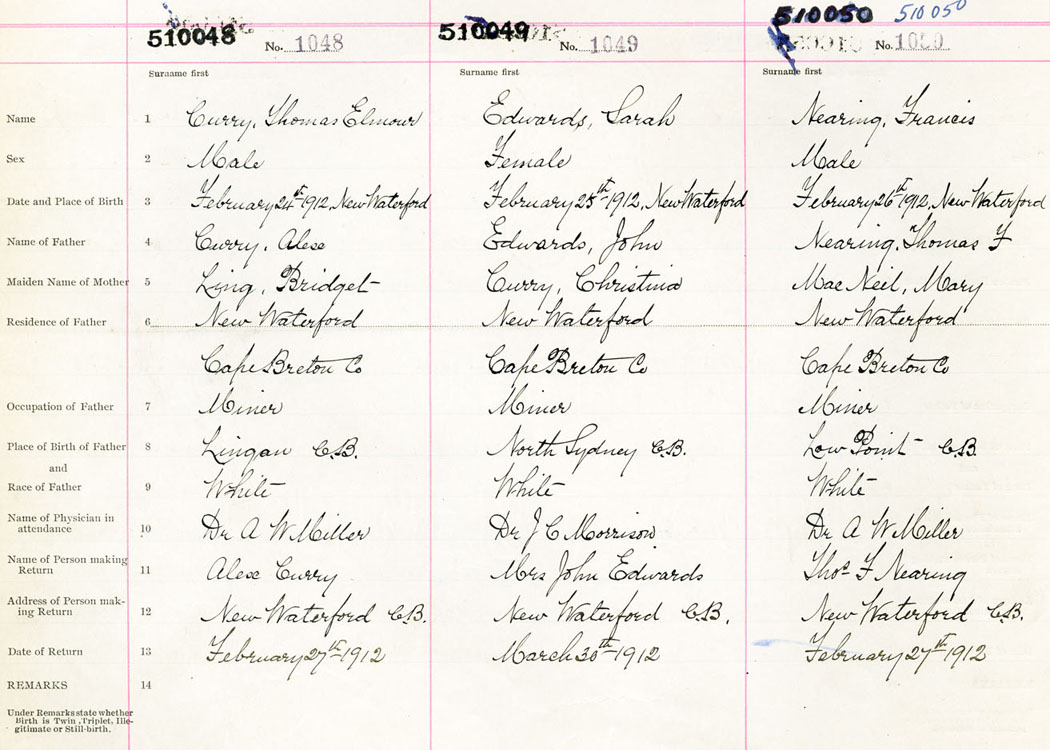 510048 510049 510050 510050
No. 1048 No. 1049 No. 1050
Surname first Surname first Surname first
Name 1 Curry, Thomas Elmour Edwards, Sarah Nearing, Francis
Sex 2 Male Female Male
Date and Place of Birth 3 February 24th 1912, New Waterford February 25th 1912, New Waterford February 26th 1912, New Waterford
Name of Father 4 Curry, Alex Edwards, John Nearing, Thomas F
Maiden Name of Mother 5 Ling, Bridget Curry, Christina Mac Neil, Mary
Residence of Father 6 New Waterford New Waterford New Waterford
Cape Breton Co Cape Breton Co Cape Breton Co
Occupation of Father 7 Miner Miner Miner
Place of Birth of Father 8 Lingan C.B. North Sydney C.B. Low Point C.B.
and
Race of Father 9 White White White
Name of Physician in
attendance 10 Dr A W Miller Dr J C Morrison Dr A W Miller
Name of Person making
Return 11 Alex Curry Mrs John Edwards Thos F Nearing
Address of Person mak-
ing Return 12 New Waterford C.B. New Waterford C.B. New Waterford C.B.
Date of Return 13 February 27th 1912 March 30th 1912 February 27th 1912
REMARKS 14
Under Remarks state whether
Birth is Twin, Triplet, Ille-
gitimate or Still-birth.